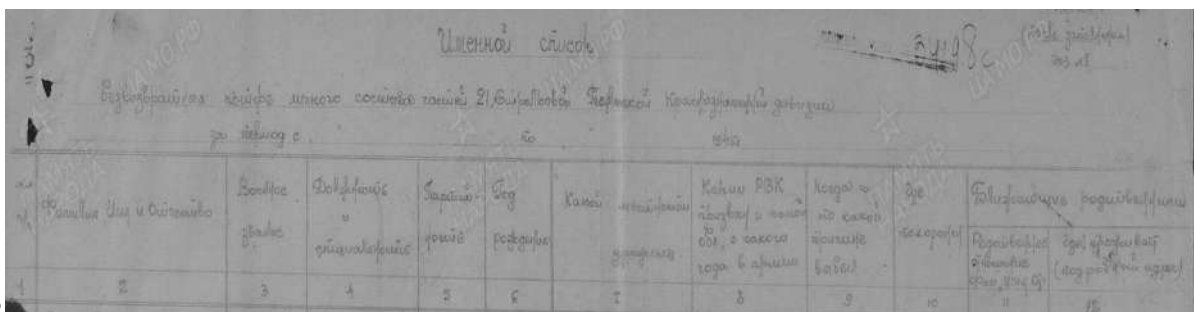 Именной список
3498с
Безвозвратных потерь личного состава частей 21 Стрелковой Пермской Краснознаменной дивизии
за период с по
№№ п/п
Фамилия Имя и Отчество
Военное звание
Должность и специальность
Партийность
Год рождения
Какой местности уроженец
Каким РВК призван и какой обл., с какого года в армии
Когда и по какой причине выбыл
Где похоронен
Ближайшие родственники
Родственное отношение
где проживает (подробный адрес)
1 2 3 4 5 6 7 8 9 10 11 12
ЦАМО.РФ